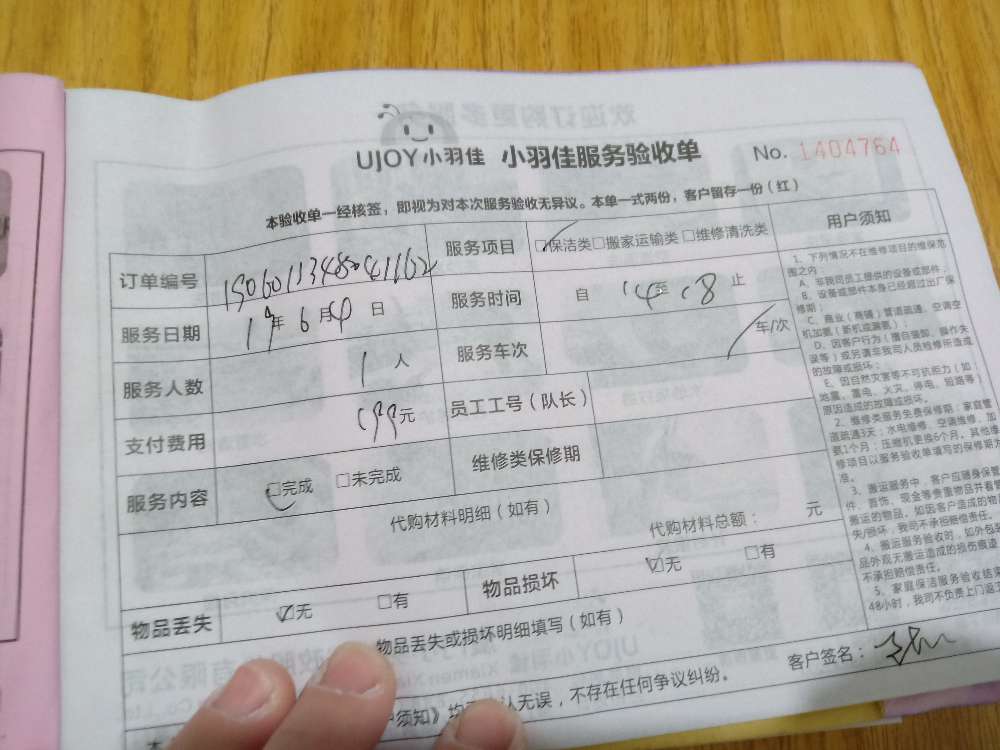 UJOY小羽佳 小羽佳服务验收单 No. 1404764
本验收单一经核签，即视为对本次服务验收无异议。本单一式两份，客户留存一份（红）
订单编号
服务项目 ☑保洁类□搬家运输类□维修清洗类
服务日期 19年6月4日
服务时间 自 14至18 止
服务人数 1人
服务车次 / 车/次
支付费用 199元
员工工号（队长）
服务内容 □完成 □未完成
维修类保修期
代购材料明细（如有）
代购材料总额： 元
物品丢失 ☑无 □有
物品损坏 ☑无 □有
物品丢失或损坏明细填写（如有）
客户签名：
认无误，不存在任何争议纠纷。
用户须知
1、下列情况不在维修项目的维保范
围之内：
A、非我司员工提供的设备或部件；
B、设备或部件本身已经超过出厂保
修期；
C、商业（商铺）管道疏通、空调空
机加氟（新机或漏氟）；
D、因客户行为（擅自装卸、操作失
误等）或另请非我司人员检修所造成
的故障或损坏；
E、因自然灾害等不可抗拒力（如：
地震、雷电、火灾、停电、短路等）
原因造成的故障或损坏。
2、维修类服务免费保修期：家庭管
道疏通3天；水电维修、空调维修、加
氨1个月；压缩机更换6个月。其他维
修项目以服务验收单填写的保修期为
准。
3、搬运服务中，客户应随身保管
件、首饰、现金等贵重物品并看管
搬运的物品，如因客户造成的物
失/损坏，我司不承担赔偿责任。
4、搬运服务验收时，如外包装
品外观无搬运造成的损伤痕迹
不承担赔偿责任。
5、家庭保洁服务验收结束
48小时，我司不负责上门返工